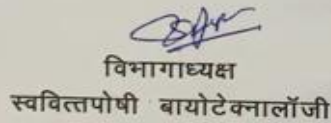 विभागाध्यक्ष
स्ववित्तपोषी बायोटेक्नालॉजी